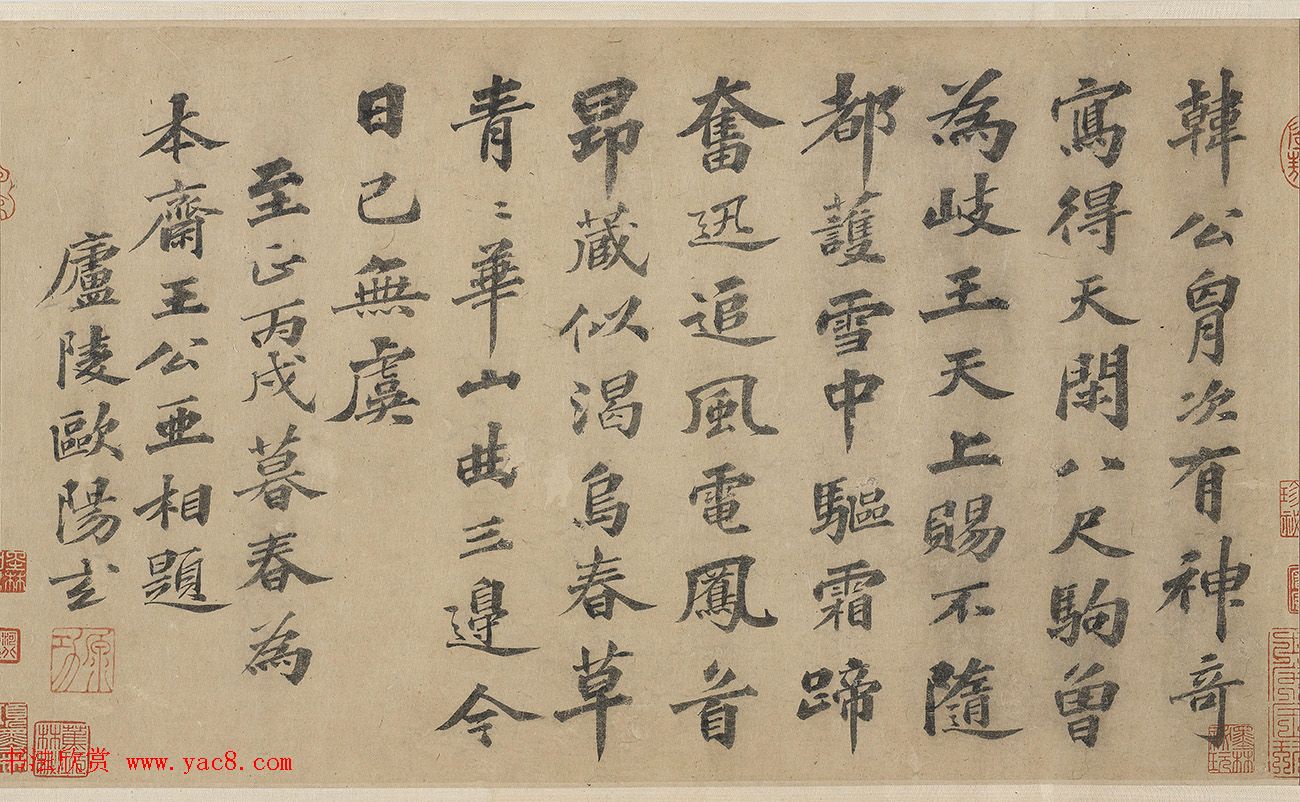 韓公胷次有神奇
寫得天閑八尺駒曽
為岐王天上賜不隨
都護雪中驅霜蹄
奮迅追風電鳳首
昂藏似渴烏春草
青〻華山曲三邊今
日已無虞
至正丙戌暮春為
本齋王公亜相題
廬陵歐陽玄
书法欣赏 www.yac8.com